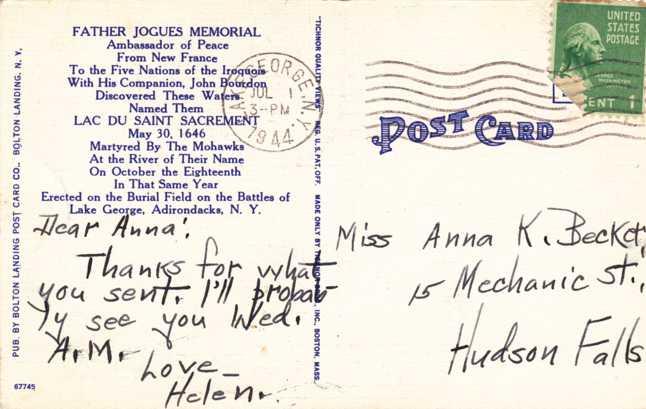 FATHER JOGUES MEMORIAL
Ambassador of Peace
From New France
To the Five Nations of the Iroquois
With His Companion, John Bourdon
Discovered These Waters
Named Them
LAC DU SAINT SACREMENT
May 30, 1646
Martyred By The Mohawks
At the River of Their Name
On October the Eighteenth
In That Same Year
Erected on the Burial Field on the Battles of
Lake George, Adirondacks, N. Y.
Dear Anna:
Thanks for what
you sent. I'll probab-
ly see you Wed.
A.M.
Love-
Helen.
PUB. BY BOLTON LANDING POST CARD CO., BOLTON LANDING, N. Y.
67745
"TICHNOR QUALITY VIEWS" REG. U. S. PAT. OFF. MADE ONLY BY INC., BOSTON, MASS.
GEORGE, N.Y.
JUL 1
3-PM
1944
POST CARD
UNITED
STATES
POSTAGE
WASHINGTON
CENT 1
Miss Anna K. Becket
15 Mechanic St.,
Hudson Falls